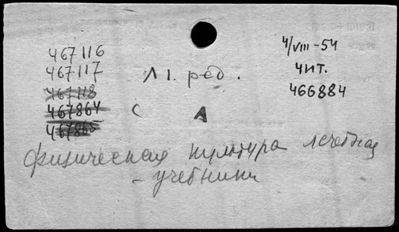 467116
467117
467118
467864
467865
Л1. ред.
С А
4/VIII-54
чит.
466884
физическая культура лечебная
- учебники